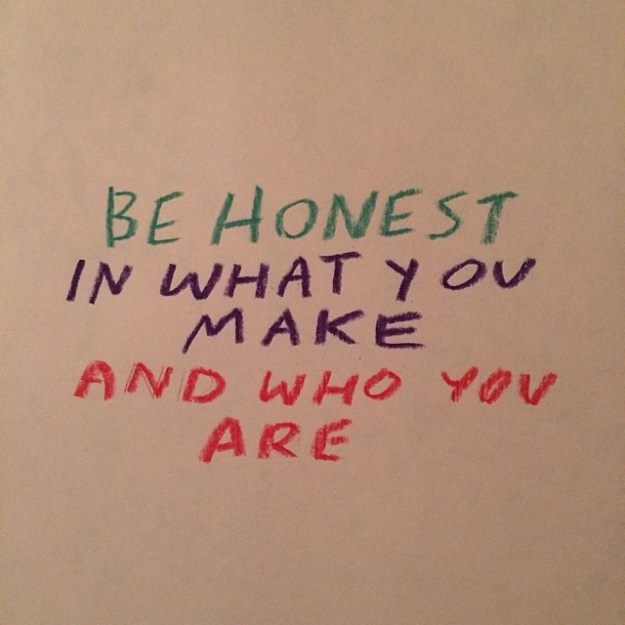 BE HONEST
IN WHAT YOU
MAKE
AND WHO YOU
ARE